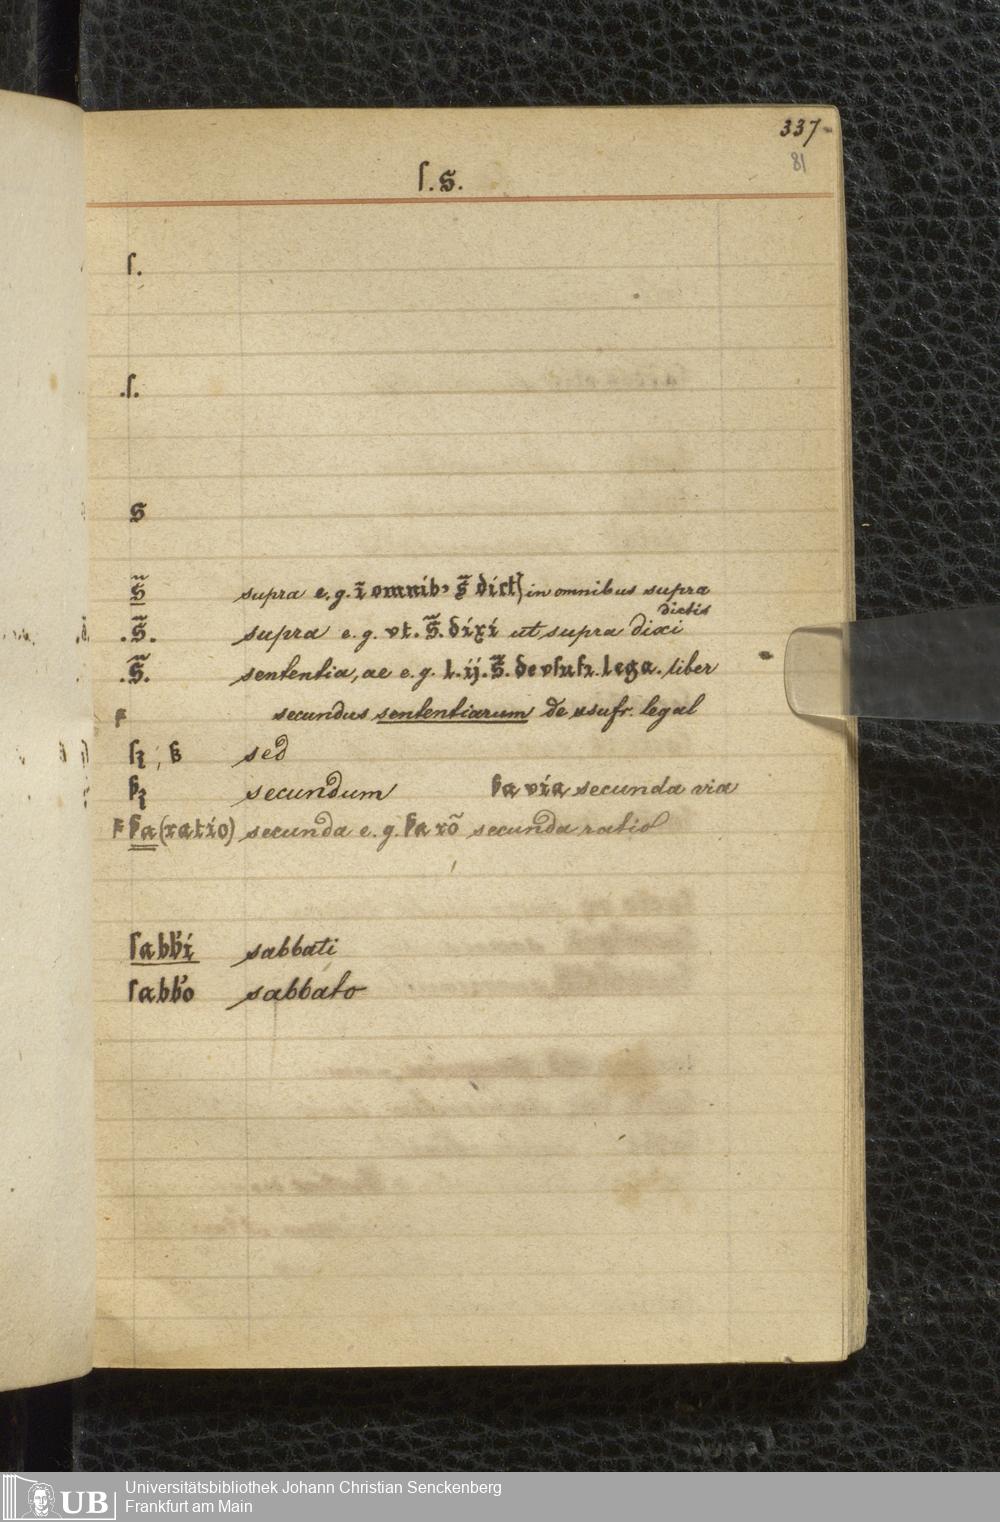 337
81
ſ. s.
ſ.
.ſ.
s
s̃ supra e.g. ĩ omnib⁹ s̃ dictꝭ in omnibus supra
dictis
.s̃. supra e.g. vt. s̃. dixi ut supra dixi
.s̃. sententia, ae e.g. l. ij. s̃. de vſufr. lega. liber
F secundus sententiarum de usufr. legal
ſꝫ ; ß sed
secundum via secunda via
(ratio) secunda e.g. rõ secunda ratio
ſabb'i sabbati
ſabb'o sabbato
Universitätsbibliothek Johann Christian Senckenberg
UB Frankfurt am Main